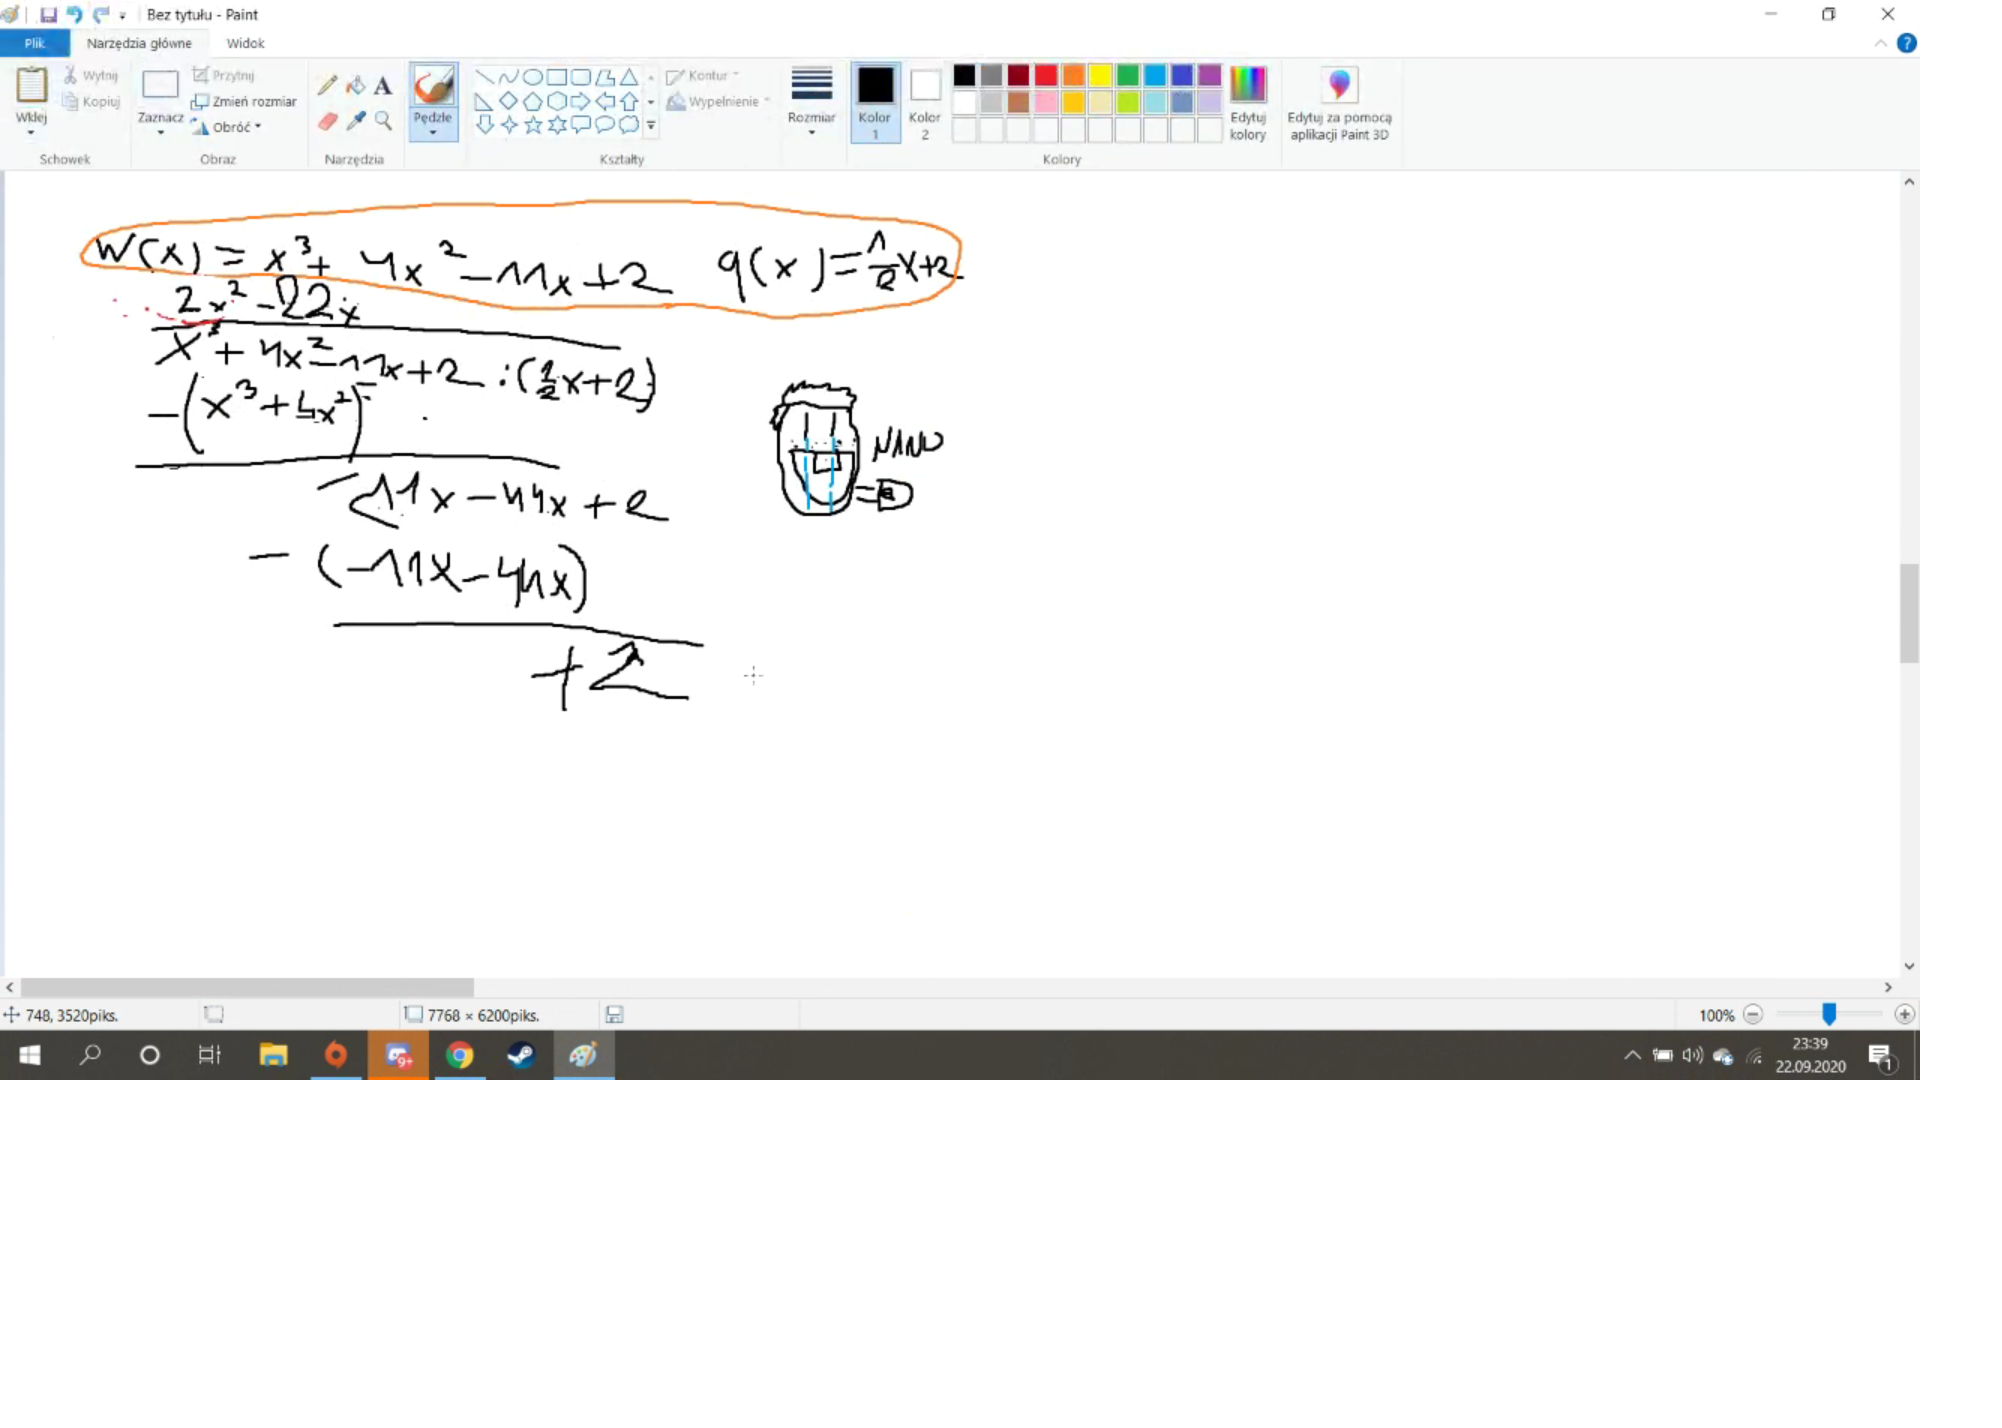 Bez tytułu - Paint
Plik Narzędzia główne Widok
Wklej Wytnij Kopiuj Schowek
Zaznacz Przytnij Zmień rozmiar Obróć Obraz
Narzędzia
Pędzle
Kształty Kontur Wypełnienie
Rozmiar
Kolor 1 Kolor 2 Edytuj kolory Kolory
Edytuj za pomocą aplikacji Paint 3D
W(x) = x³ + 4x² - 11x + 2 q(x) = 1/2 x + 2
2x² - 22x
x³ + 4x² - 11x + 2 : (1/2 x + 2)
- (x³ + 4x²)
NANO
- 11x - 44x + 2
- (-11x - 44x)
+2
748, 3520piks. 7768 × 6200piks. 100%
9+
23:39
22.09.2020
1